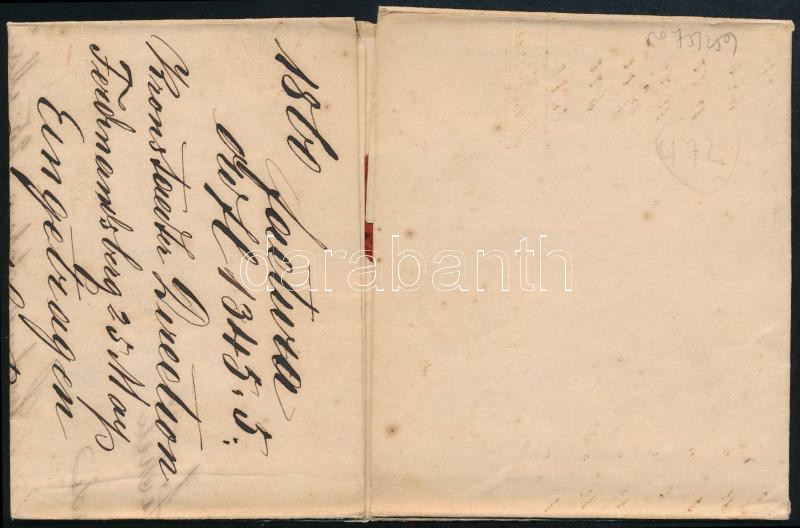 1860 factura
öWfl 1345. 5.
Kronstädter Direction
Ferdinandsberg 25 May
Eingetragen
472
darabanth